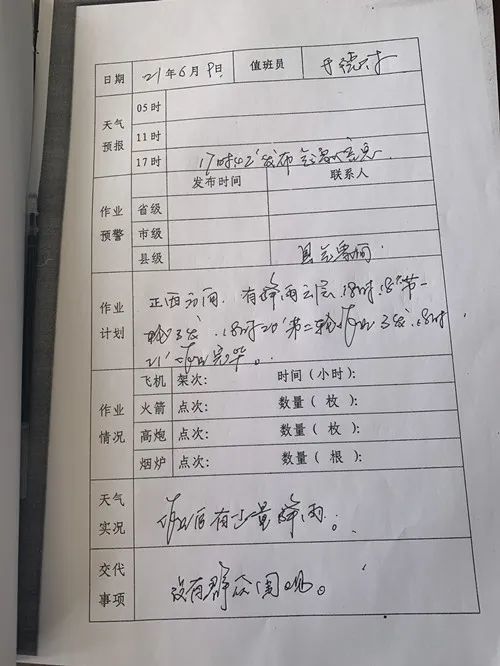 日期 21年6月9日 值班员
天气预报 05时
11时
17时 17时42'发布气象信息.
发布时间 联系人
作业预警 省级
市级
县级 县气象局
作业计划 正西方向.有降雨云层.18时18'第一
轮3发.18时20'第二轮作业3发.18时
21'作业完毕。
作业情况 飞机 架次: 时间(小时):
火箭 点次: 数量(枚):
高炮 点次: 数量(枚):
烟炉 点次: 数量(根):
天气实况 作业后有少量降雨。
交代事项 没有群众围观。